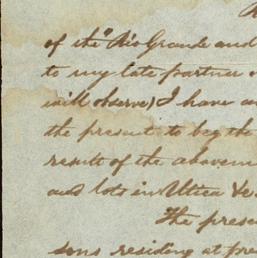 of the Rio Grande and
to my late partner
will observe) I have
the present to beg the
result of the abovem
and lots in Utica &c.
The prese
sons residing at pre